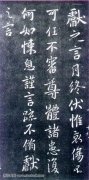 獻之言月終伏惟哀傷不
可任不審尊體諸患復
何如悚息謹言疏不備獻
之言